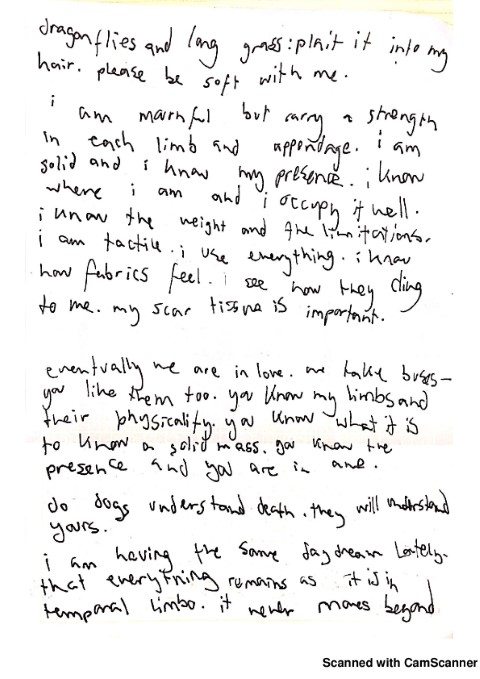 dragonflies and long grass: plait it into my
hair. please be soft with me.
i
am mournful but carry a strength
in each limb and appendage. i am
solid and i know my presence. i know
where i am and i occupy it well.
i know the weight and the limitations.
i am tactile. i use everything. i know
how fabrics feel. i see how they cling
to me. my scar tissue is important.
eventually we are in love. we take buses—
you like them too. you know my limbs and
their physicality. you know what it is
to know a solid mass. you know the
presence and you are in awe.
do dogs understand death. they will understand
yours.
i am having the same daydream lately.
that everything remains as it is in
temporal limbo. it never moves beyond
Scanned with CamScanner